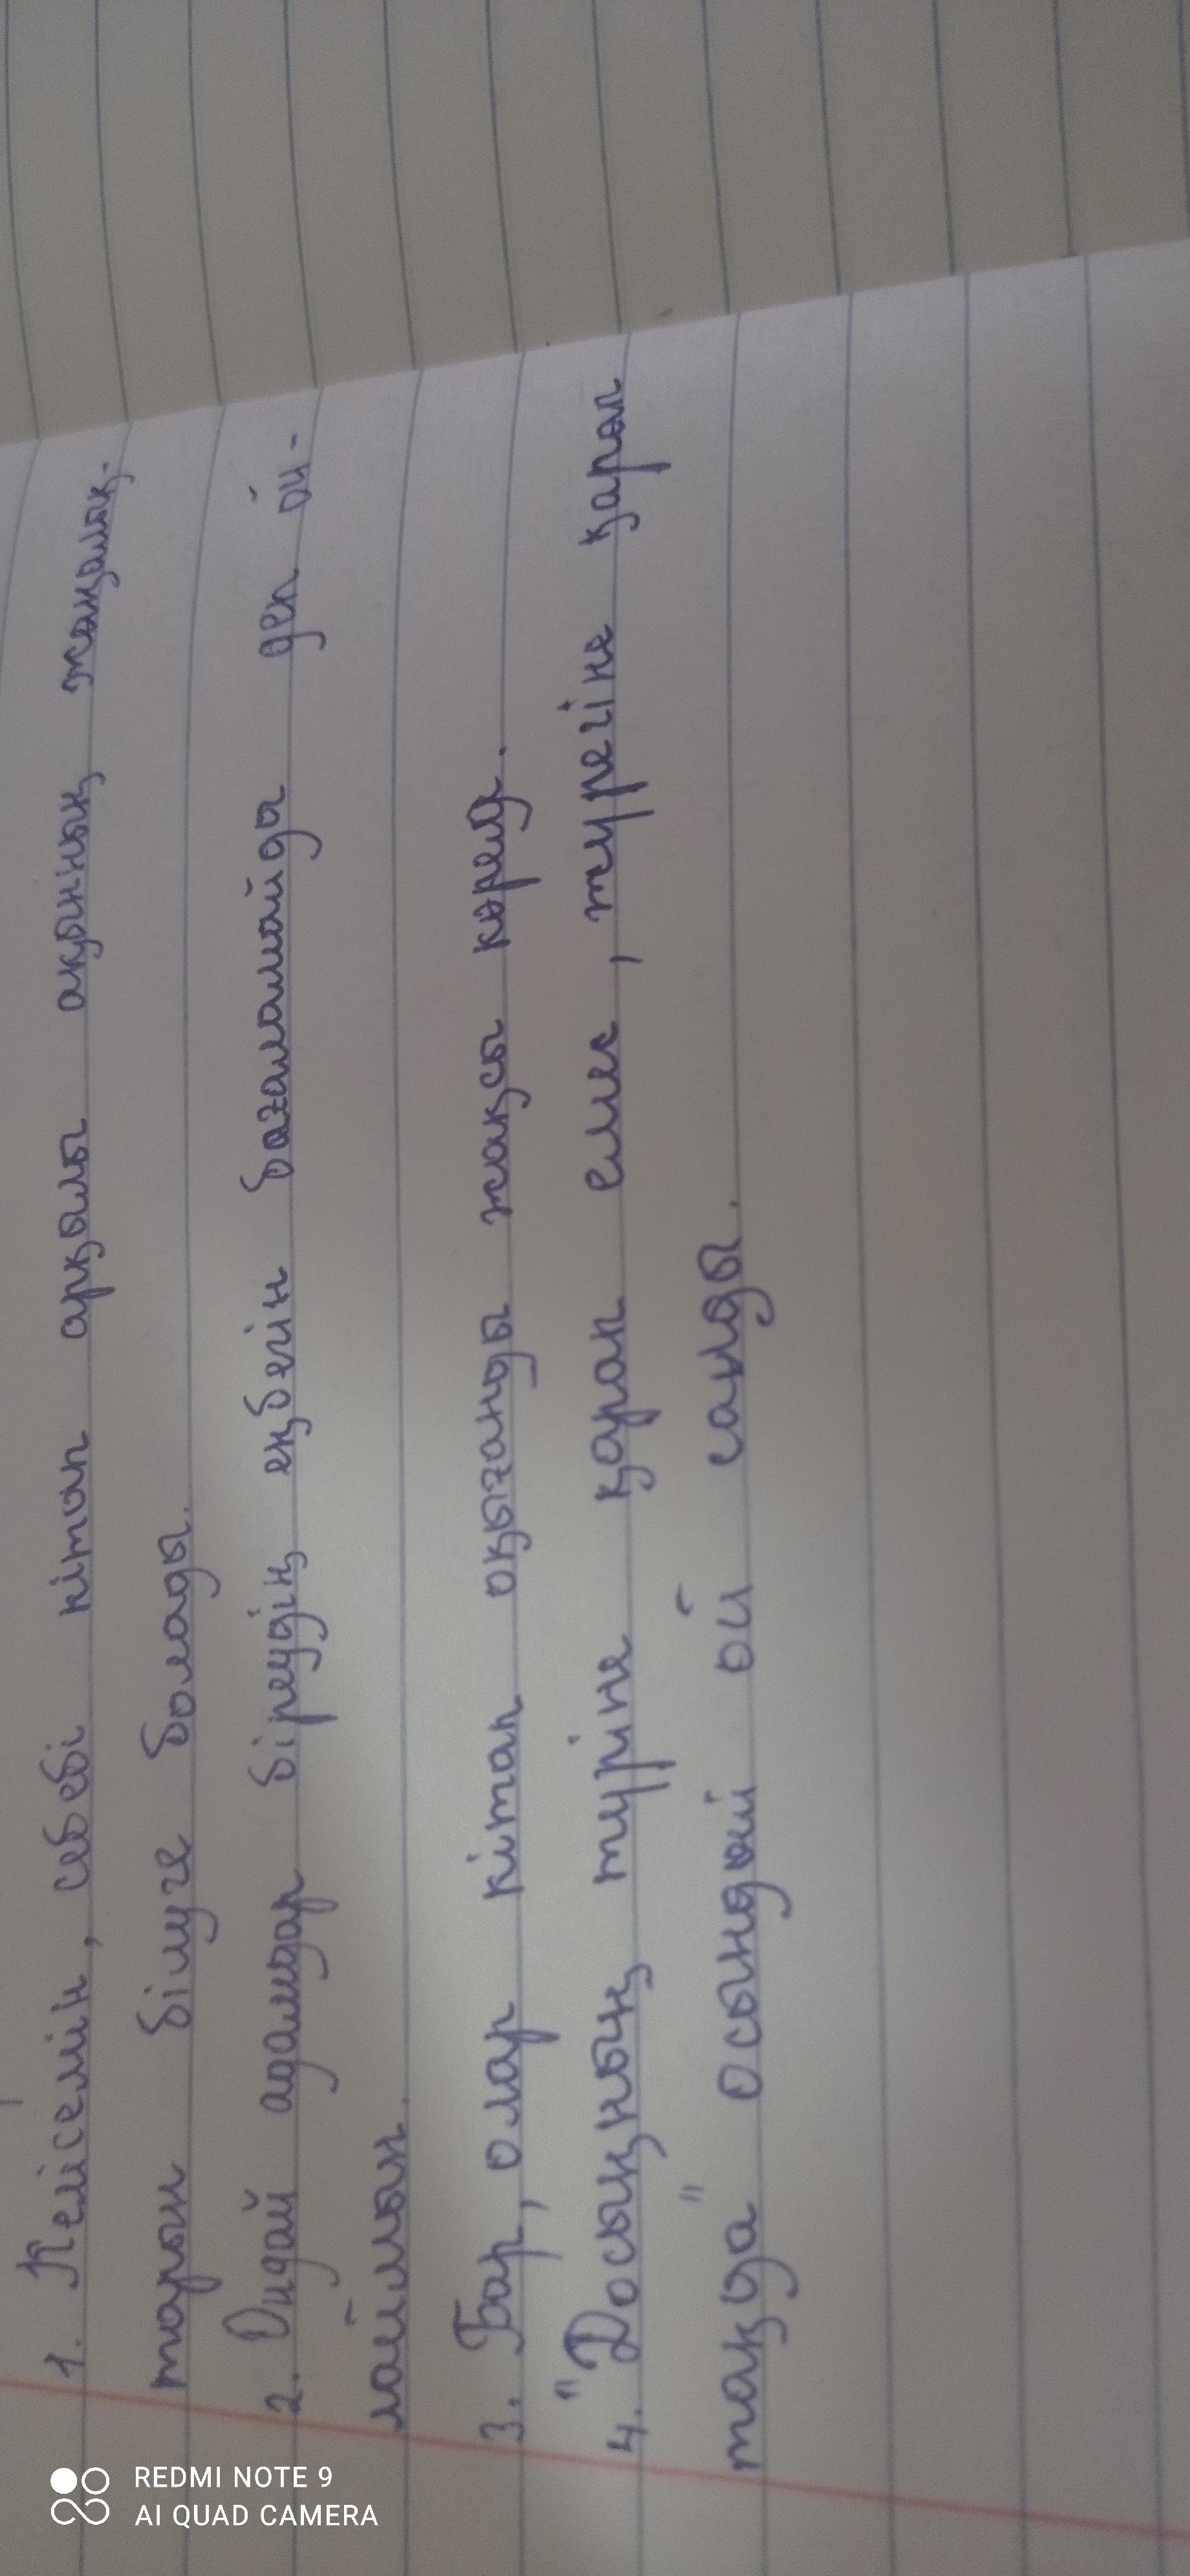 1. Келісемін, себебі кітап арқылы ақынның жаңалық-
тарын білуге болады.
2. Ондай адамдар біреудің еңбегін бағаламайды деп ой-
лаймын.
3. Бар, олар кітап оқығанды жақсы көреді.
4. "Досыңның түріне қарап емес, жүрегіне қарап
таңда" осындай ой салды.
REDMI NOTE 9
AI QUAD CAMERA